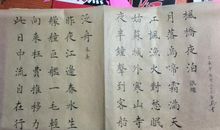 楓橋夜泊 張繼
月落烏啼霜滿天
江楓漁火對愁眠
姑蘇城外寒山寺
夜半鐘聲到客船
泛舟 朱熹
昨夜江邊春水生
艨艟巨艦一毛輕
向來枉費推移力
此日中流自在行